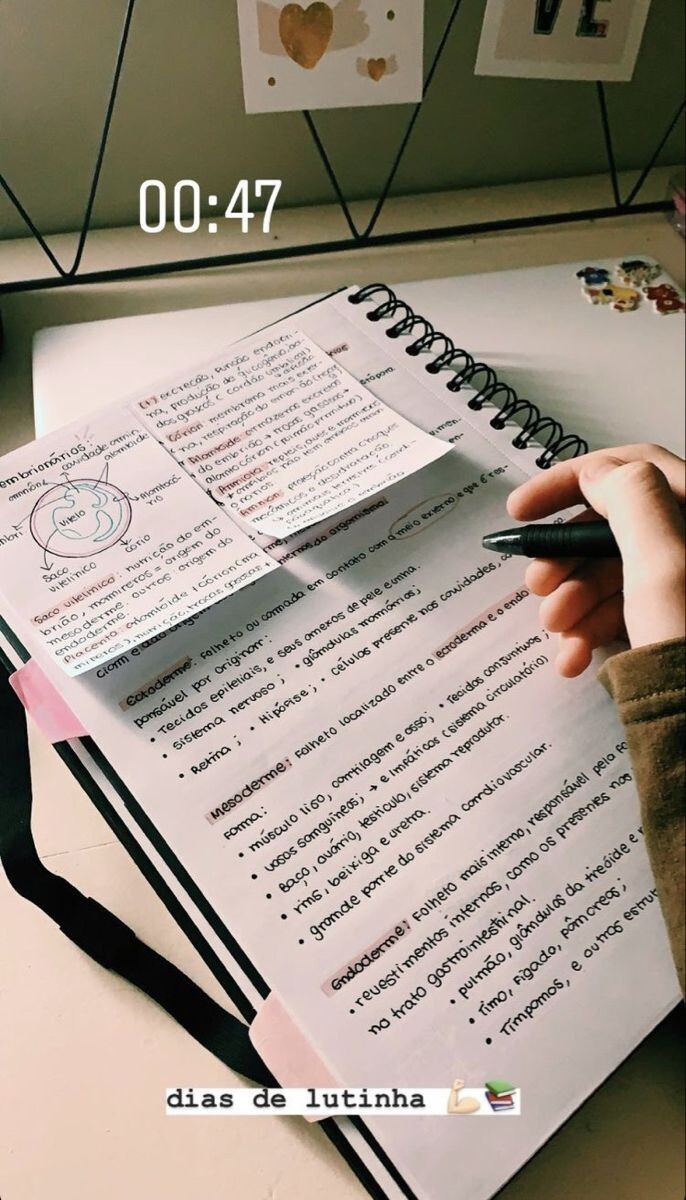 VE
00:47
embrionários:
cavidade amnió
alantoide
Vitelo
cório
saco
vitelínico
Saco vitelínico: nutrição do em-
brião, mamíferos = origem do
mesoderme. outros: origem do
endoderme.
Placenta: alantoide + córion (ma
míferos), nutrição, trocas gasosas,
excreção, função endócri-
na, produção de glicogênio, áci-
dos graxos
Córion: membrana mais exter-
na, respiração do embrião
Alantoide: armazena excretas
do embrião → trocas gasosas →
Amniota: répteis, aves e mamíferos
Âmnion: proteção contra choques
mecânicos e desidratação.
internos do organismo.
Ectoderme: Folheto ou camada em contato com o meio externo e que é res-
ponsável por originar:
• Tecidos epiteliais, e seus anexos de pele e unha.
• Sistema nervoso; • glândulas mamárias;
• Retina; • Hipófise; • células presente nas cavidades,
Mesoderme: Folheto localizado entre o ectoderma e o endo
Forma:
• músculo liso, cartilagem e osso; • Tecidos conjuntivos;
• vasos sanguíneos; → e linfáticos (sistema circulatório)
• Baço, ovário, testículo, sistema reprodutor.
• rins, bexiga e uretra.
• grande parte do sistema cardiovascular.
Endoderme: Folheto mais interno, responsável pela fo
• revestimentos internos, como os presentes nos
no trato gastrointestinal.
• pulmão, glândulas da tireóide e
• Timo, Fígado, pâncreas;
• Tímpanos, e outras estrut
dias de lutinha 💪🏻📚